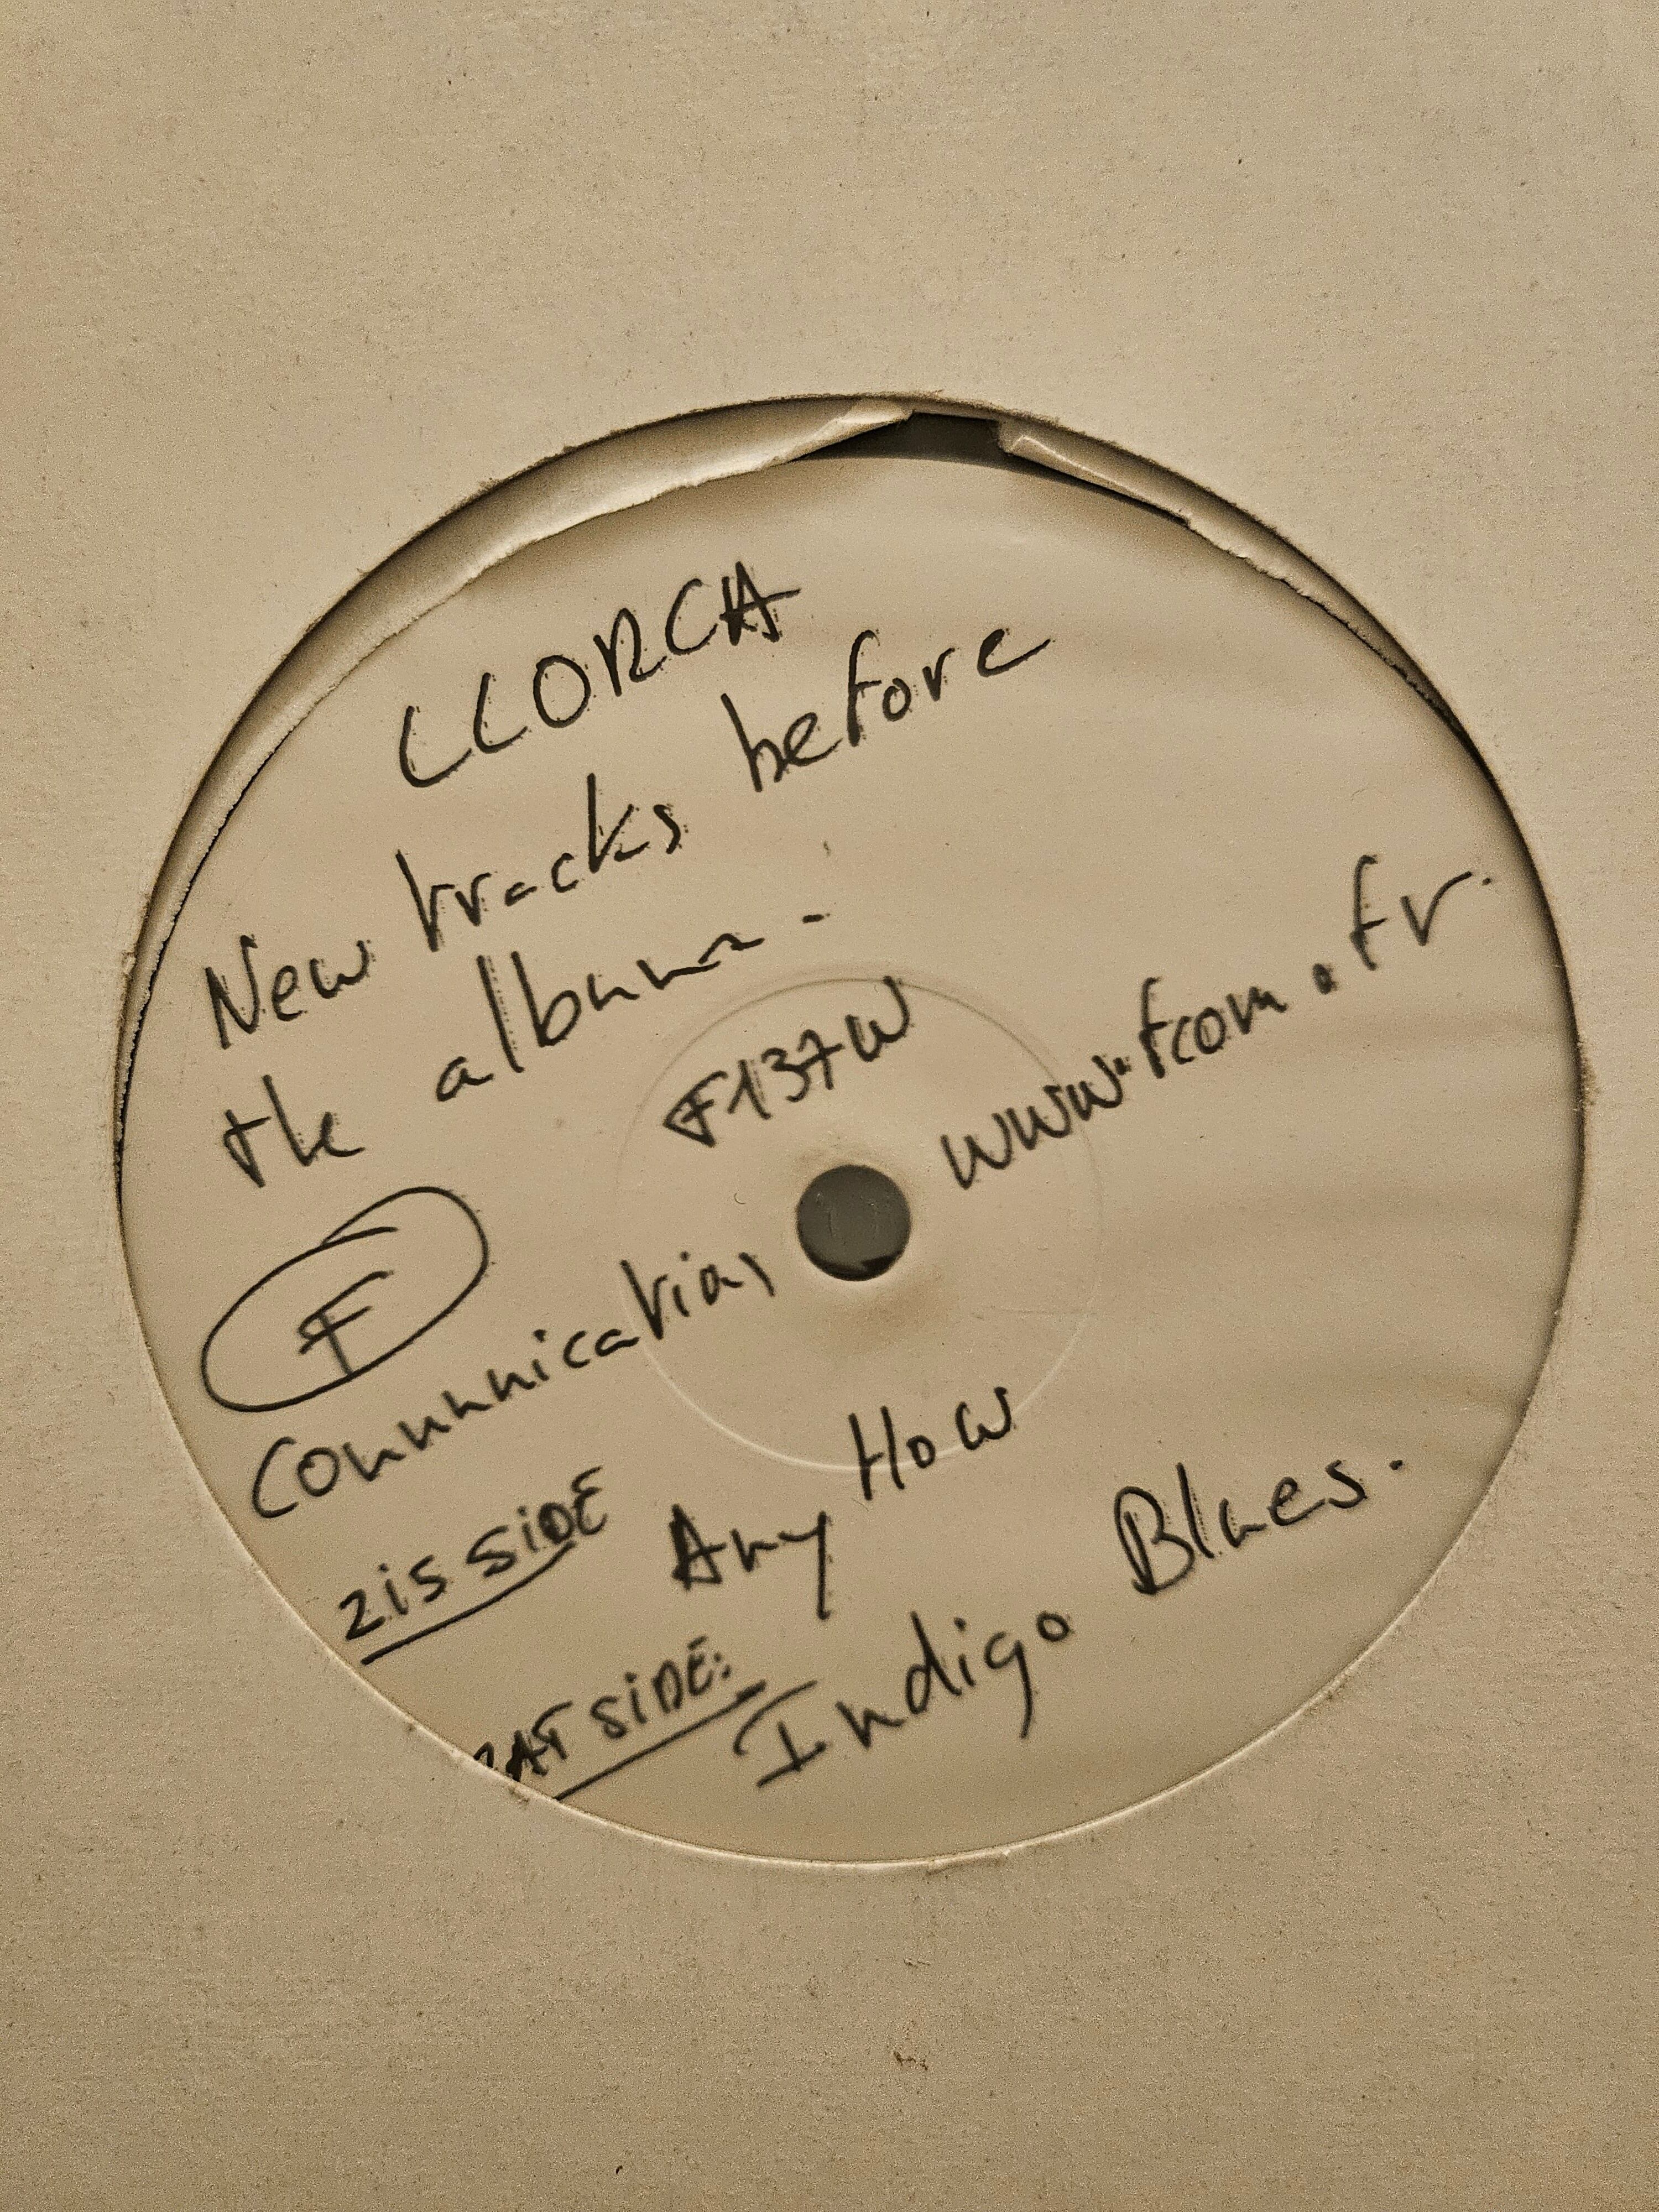 LLORCA
New tracks before
the album.
F137W
www.fcom.fr.
F
Communication
ZIS SIDE Any How
ZAT SIDE: Indigo Blues.